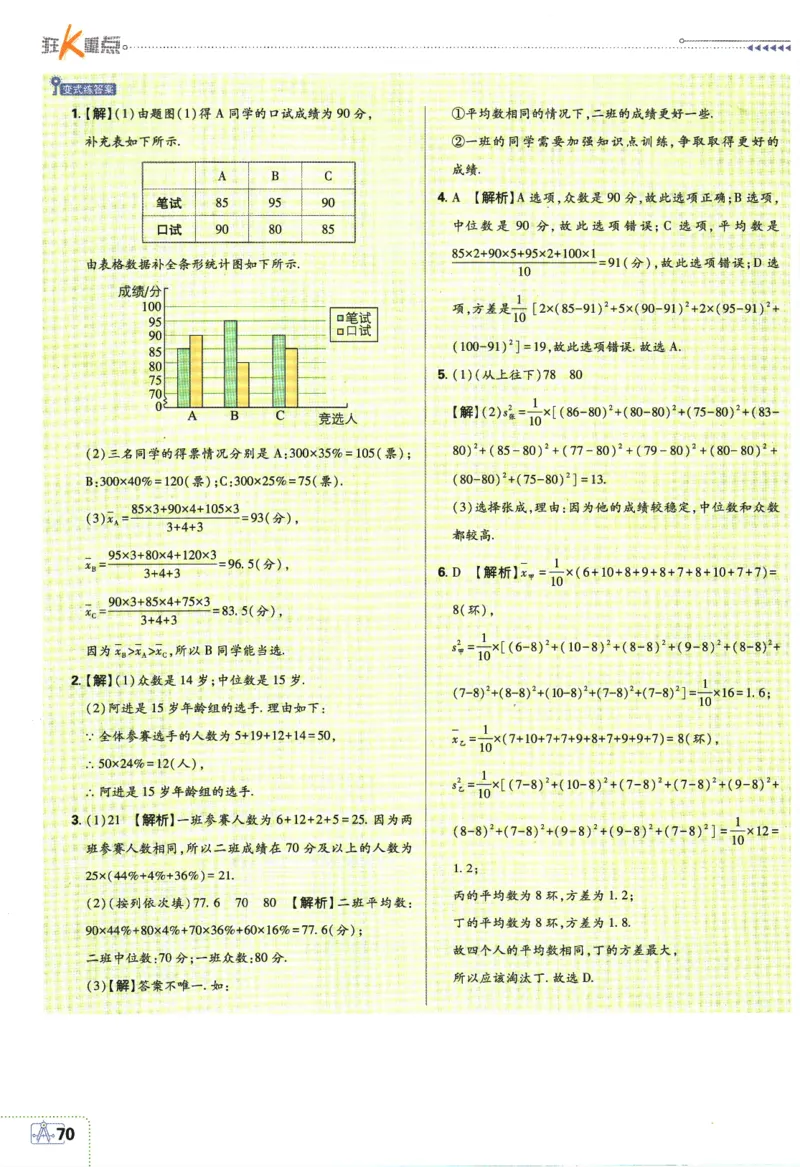 狂K重点
变式练答案
1.【解】(1)由题图(1)得A同学的口试成绩为90分,
补充表如下所示.
A B C
笔试 85 95 90
口试 90 80 85
由表格数据补全条形统计图如下所示.
成绩/分
100
95
90
85
80
75
70
0
A B C 竞选人
笔试
口试
(2)三名同学的得票情况分别是A:300×35%=105(票);
B:300×40%=120(票);C:300×25%=75(票).
(3)x̄A=(85×3+90×4+105×3)/(3+4+3)=93(分),
x̄B=(95×3+80×4+120×3)/(3+4+3)=96.5(分),
x̄C=(90×3+85×4+75×3)/(3+4+3)=83.5(分),
因为x̄B>x̄A>x̄C,所以B同学能当选.
2.【解】(1)众数是14岁;中位数是15岁.
(2)阿进是15岁年龄组的选手.理由如下:
∵全体参赛选手的人数为5+19+12+14=50,
∴50×24%=12(人),
∴阿进是15岁年龄组的选手.
3.(1)21 【解析】一班参赛人数为6+12+2+5=25.因为两
班参赛人数相同,所以二班成绩在70分及以上的人数为
25×(44%+4%+36%)=21.
(2)(按列依次填)77.6 70 80 【解析】二班平均数:
90×44%+80×4%+70×36%+60×16%=77.6(分);
二班中位数:70分;一班众数:80分.
(3)【解】答案不唯一.如:
①平均数相同的情况下,二班的成绩更好一些.
②一班的同学需要加强知识点训练,争取取得更好的
成绩.
4.A 【解析】A选项,众数是90分,故此选项正确;B选项,
中位数是90分,故此选项错误;C选项,平均数是
(85×2+90×5+95×2+100×1)/10=91(分),故此选项错误;D选
项,方差是1/10[2×(85-91)²+5×(90-91)²+2×(95-91)²+
(100-91)²]=19,故此选项错误.故选A.
5.(1)(从上往下)78 80
【解】(2)s²张=1/10×[(86-80)²+(80-80)²+(75-80)²+(83-
80)²+(85-80)²+(77-80)²+(79-80)²+(80-80)²+
(80-80)²+(75-80)²]=13.
(3)选择张成,理由:因为他的成绩较稳定,中位数和众数
都较高.
6.D 【解析】x̄甲=1/10×(6+10+8+9+8+7+8+10+7+7)=
8(环),
s²甲=1/10×[(6-8)²+(10-8)²+(8-8)²+(9-8)²+(8-8)²+
(7-8)²+(8-8)²+(10-8)²+(7-8)²+(7-8)²]=1/10×16=1.6;
x̄乙=1/10×(7+10+7+7+9+8+7+9+9+7)=8(环),
s²乙=1/10×[(7-8)²+(10-8)²+(7-8)²+(7-8)²+(9-8)²+
(8-8)²+(7-8)²+(9-8)²+(9-8)²+(7-8)²]=1/10×12=
1.2;
丙的平均数为8环,方差为1.2;
丁的平均数为8环,方差为1.8.
故四个人的平均数相同,丁的方差最大,
所以应该淘汰丁.故选D.
70